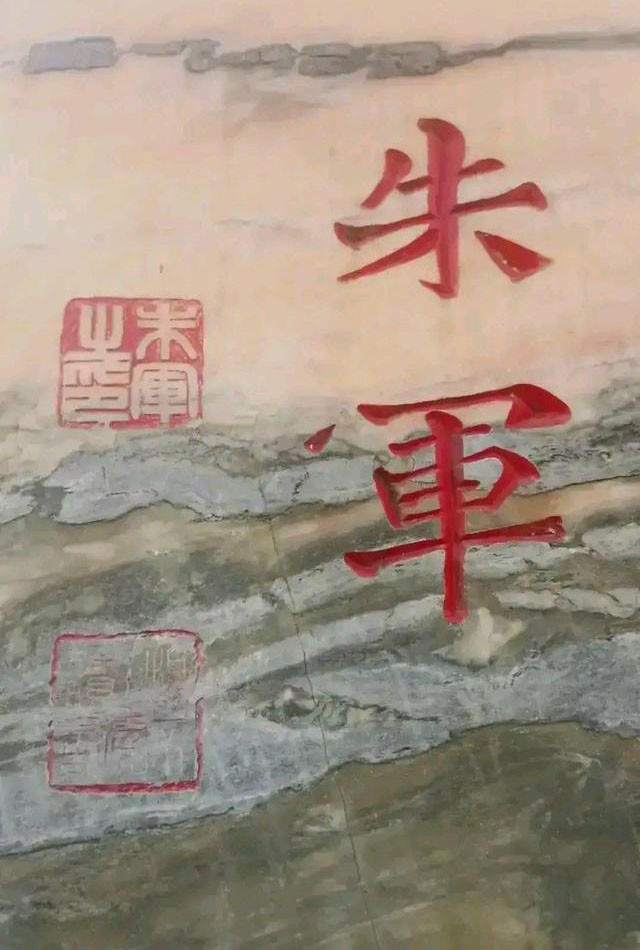 朱軍
朱軍之印